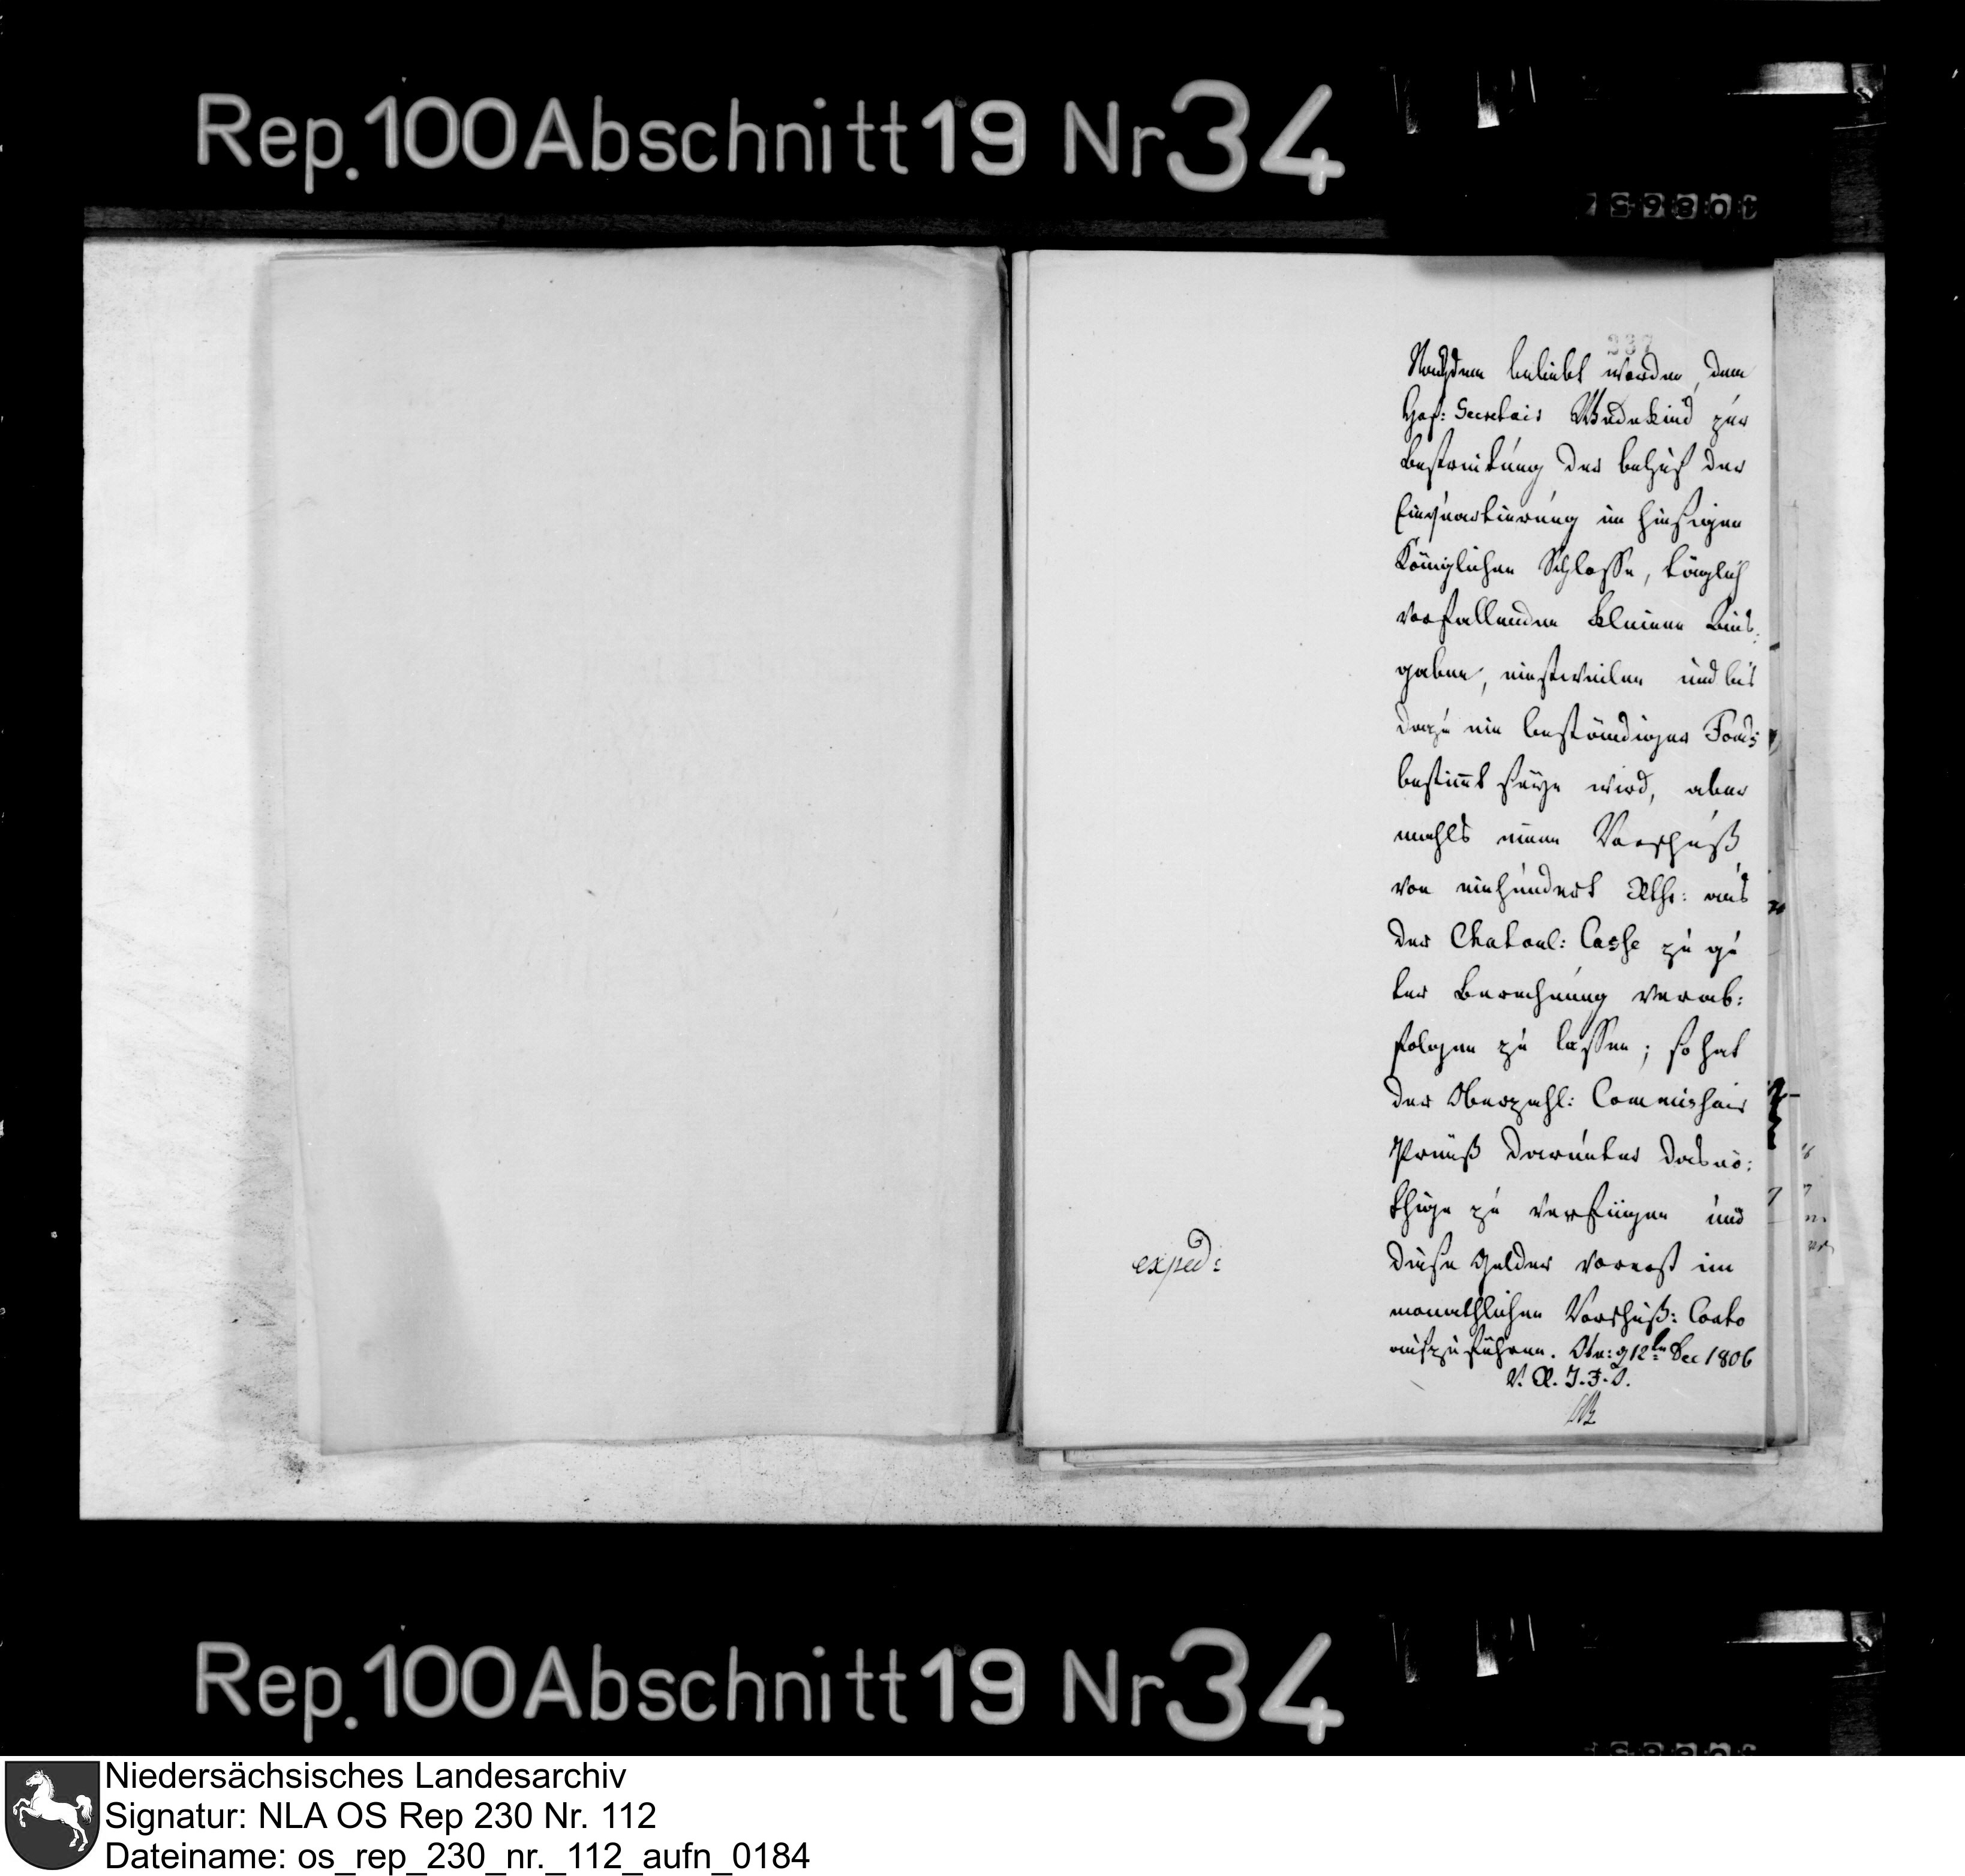 Rep. 100 Abschnitt 19 Nr 34
237
Nachdem beliebt worden, dem
Hof: Secretair Wedekind zur
Bestreitung der behuf der
Einquartierung im hiesigen
Königlichen Schlosse, täglich
vorfallenden kleinen Aus:
gaben, einstweilen und bis
dazu ein beständiger Fonds
bestimt seyn wird, aber
mahls einen Vorschuß
von einhundert Rthr: aus
der Chatoul: Casse zu gu
ter Berechnung verab:
folgen zu lassen; so hat
der Oberzahl: Commissair
Preuß darunter das nö:
thige zu verfügen und
diese Gelder vorerst im
monathlichen Vorschuß: Conto
aufzuführen. Osn: d 12ten Dec 1806
V. R. J. F. O.
exped:
Rep. 100 Abschnitt 19 Nr 34
Niedersächsisches Landesarchiv
Signatur: NLA OS Rep 230 Nr. 112
Dateiname: os_rep_230_nr._112_aufn_0184